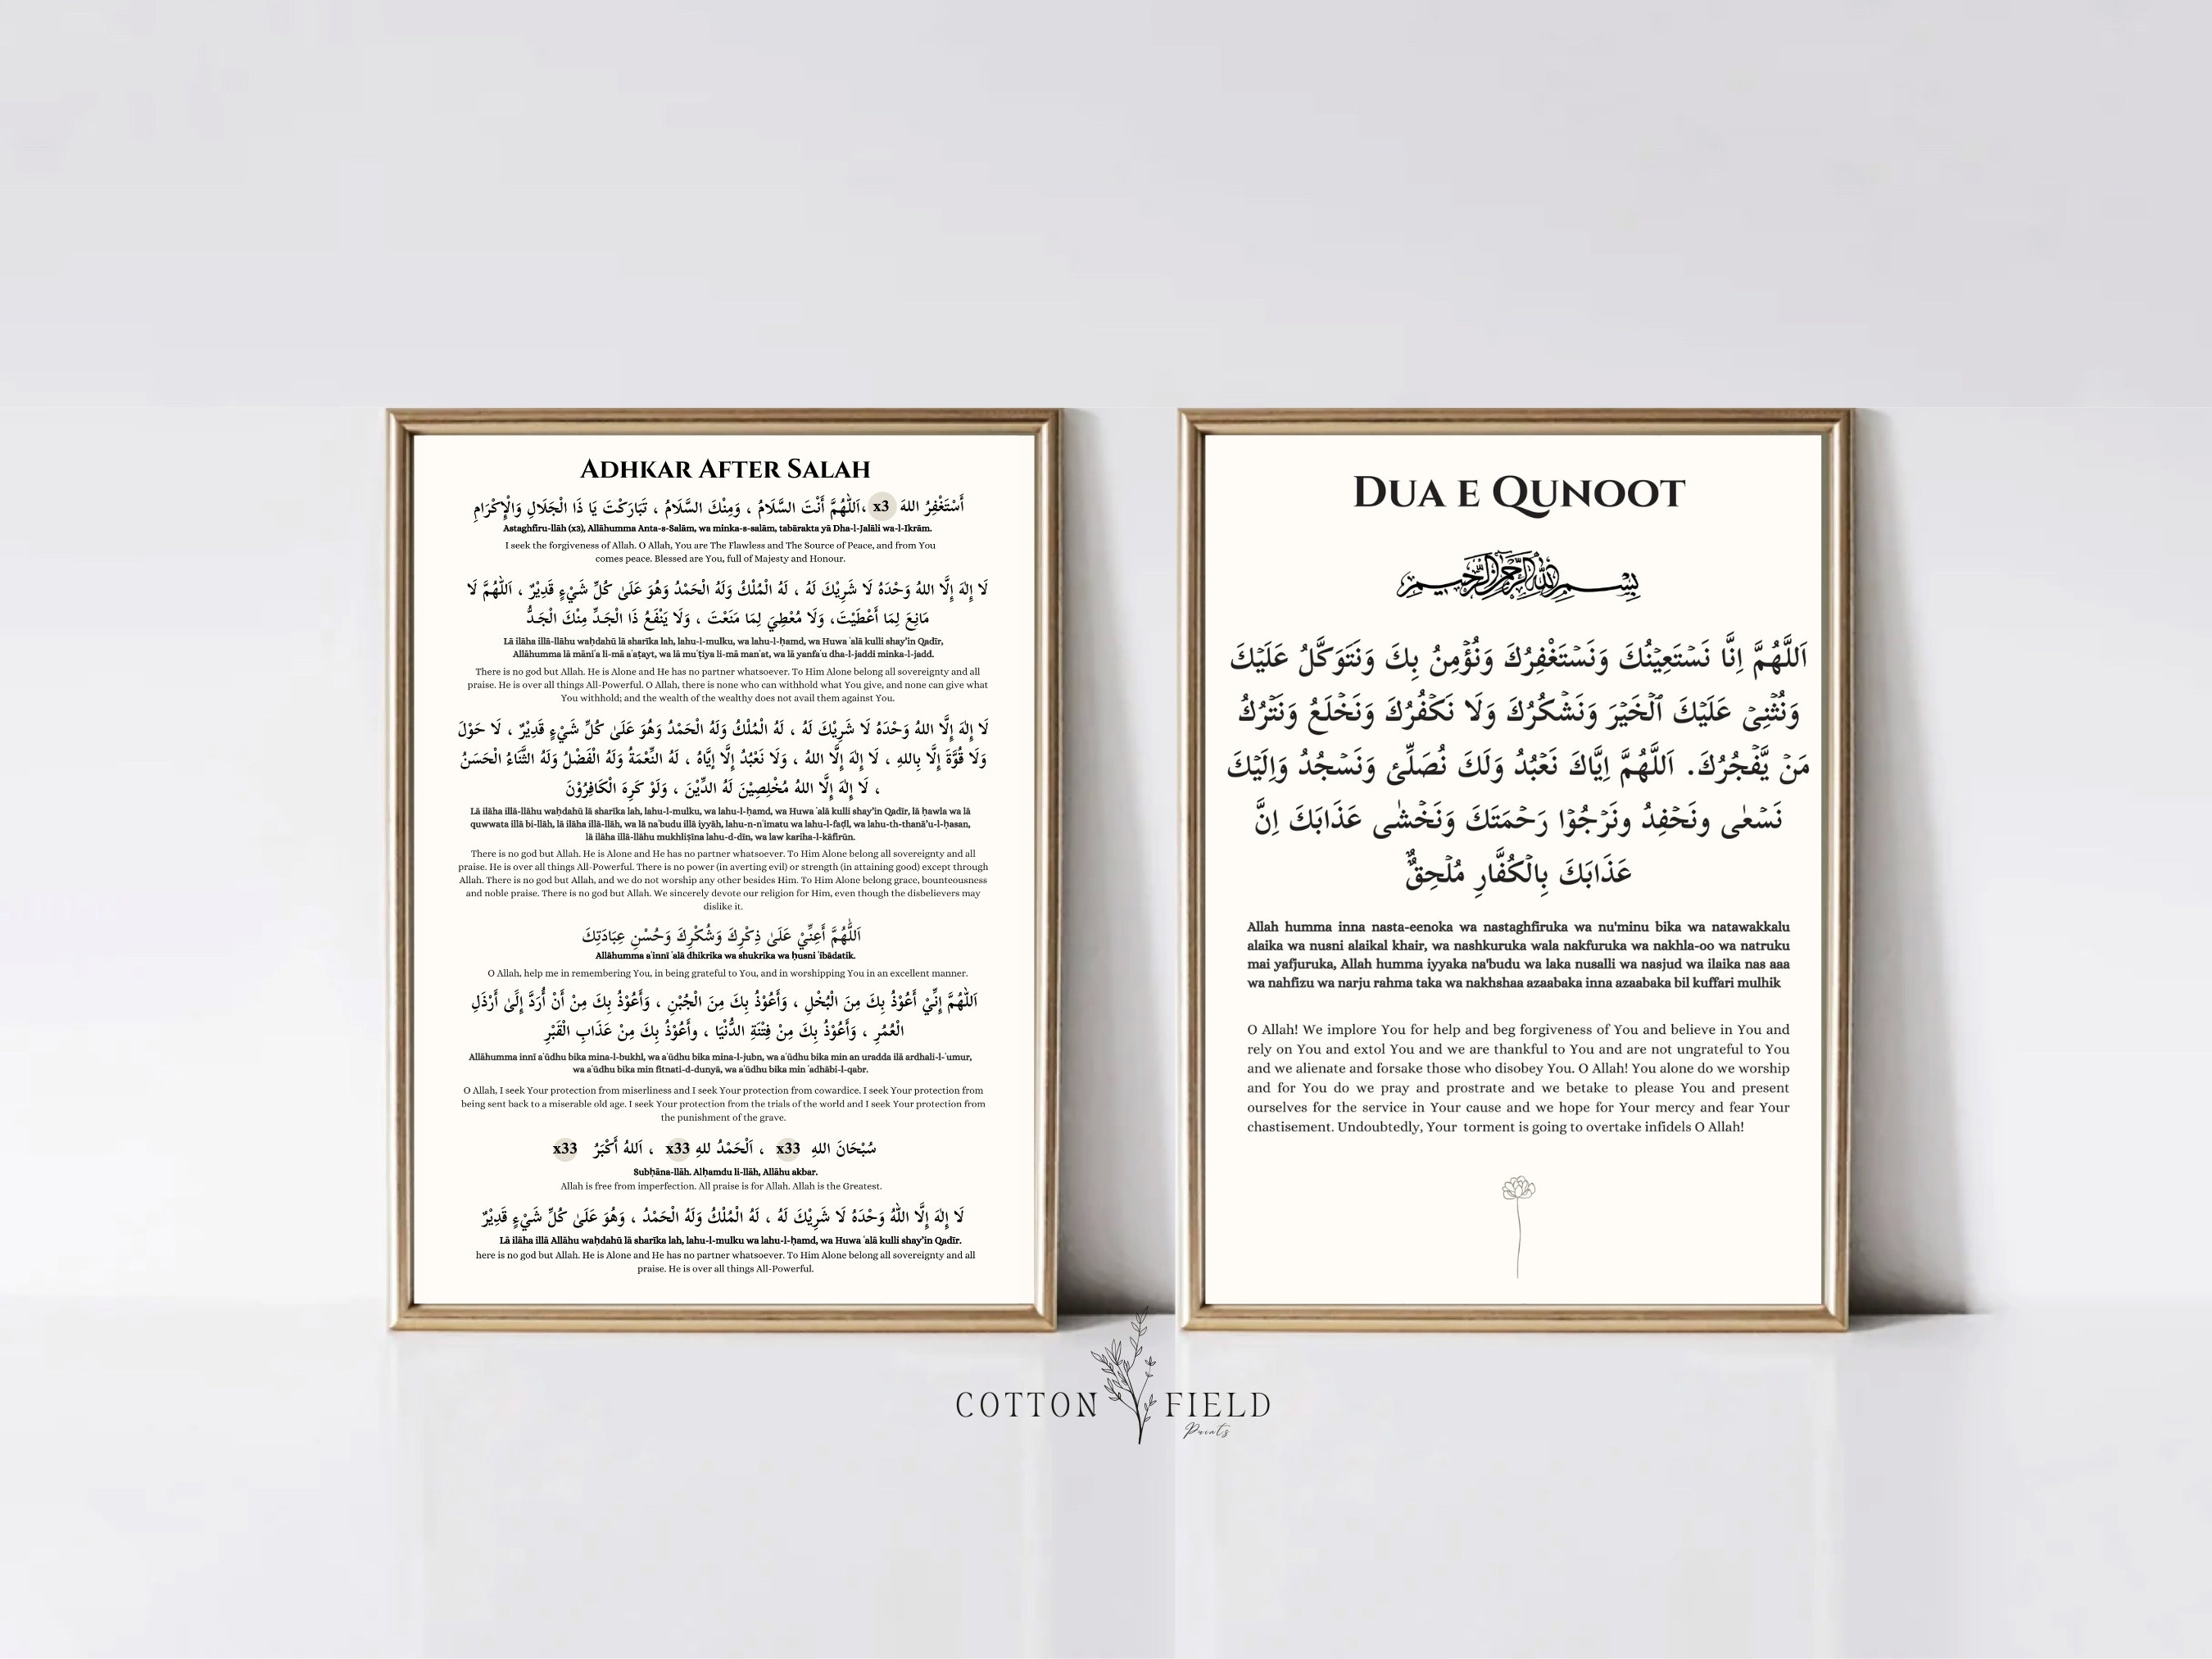 ADHKAR AFTER SALAH
أَسْتَغْفِرُ اللهَ x3 ،اَللّٰهُمَّ أَنْتَ السَّلَامُ ، وَمِنْكَ السَّلَامُ ، تَبَارَكْتَ يَا ذَا الْجَلَالِ وَالْإِكْرَامِ
Astaghfiru-llāh (x3), Allāhumma Anta-s-Salām, wa minka-s-salām, tabārakta yā Dha-l-Jalāli wa-l-Ikrām.
I seek the forgiveness of Allah. O Allah, You are The Flawless and The Source of Peace, and from You
comes peace. Blessed are You, full of Majesty and Honour.
لَا إِلٰهَ إِلَّا اللهُ وَحْدَهُ لَا شَرِيْكَ لَهُ ، لَهُ الْمُلْكُ وَلَهُ الْحَمْدُ وَهُوَ عَلَىٰ كُلِّ شَيْءٍ قَدِيْرٌ ، اَللّٰهُمَّ لَا
مَانِعَ لِمَا أَعْطَيْتَ، وَلَا مُعْطِيَ لِمَا مَنَعْتَ ، وَلَا يَنْفَعُ ذَا الْجَدِّ مِنْكَ الْجَدُّ
Lā ilāha illā-llāhu waḥdahū lā sharīka lah, lahu-l-mulku, wa lahu-l-ḥamd, wa Huwa ʿalā kulli shay’in Qadīr,
Allāhumma lā māniʿa li-mā aʿaṭayt, wa lā muʿṭiya li-mā manʿat, wa lā yanfaʿu dha-l-jaddi minka-l-jadd.
There is no god but Allah. He is Alone and He has no partner whatsoever. To Him Alone belong all sovereignty and all
praise. He is over all things All-Powerful. O Allah, there is none who can withhold what You give, and none can give what
You withhold; and the wealth of the wealthy does not avail them against You.
لَا إِلٰهَ إِلَّا اللهُ وَحْدَهُ لَا شَرِيْكَ لَهُ ، لَهُ الْمُلْكُ وَلَهُ الْحَمْدُ وَهُوَ عَلَىٰ كُلِّ شَيْءٍ قَدِيْرٌ ، لَا حَوْلَ
وَلَا قُوَّةَ إِلَّا بِاللهِ ، لَا إِلٰهَ إِلَّا اللهُ ، وَلَا نَعْبُدُ إِلَّا إِيَّاهُ ، لَهُ النِّعْمَةُ وَلَهُ الْفَضْلُ وَلَهُ الثَّنَاءُ الْحَسَنُ
، لَا إِلٰهَ إِلَّا اللهُ مُخْلِصِيْنَ لَهُ الدِّيْنَ ، وَلَوْ كَرِهَ الْكَافِرُوْنَ
Lā ilāha illā-llāhu waḥdahū lā sharīka lah, lahu-l-mulku, wa lahu-l-ḥamd, wa Huwa ʿalā kulli shay’in Qadīr, lā ḥawla wa lā
quwwata illā bi-llāh, lā ilāha illā-llāh, wa lā naʿbudu illā iyyāh, lahu-n-nʿimatu wa lahu-l-faḍl, wa lahu-th-thanā’u-l-ḥasan,
lā ilāha illā-llāhu mukhliṣīna lahu-d-dīn, wa law kariha-l-kāfirūn.
There is no god but Allah. He is Alone and He has no partner whatsoever. To Him Alone belong all sovereignty and all
praise. He is over all things All-Powerful. There is no power (in averting evil) or strength (in attaining good) except through
Allah. There is no god but Allah, and we do not worship any other besides Him. To Him Alone belong grace, bounteousness
and noble praise. There is no god but Allah. We sincerely devote our religion for Him, even though the disbelievers may
dislike it.
اَللّٰهُمَّ أَعِنِّيْ عَلَىٰ ذِكْرِكَ وَشُكْرِكَ وَحُسْنِ عِبَادَتِكَ
Allāhumma aʿinnī ʿalā dhikrika wa shukrika wa ḥusni ʿibādatik.
O Allah, help me in remembering You, in being grateful to You, and in worshipping You in an excellent manner.
اَللّٰهُمَّ إِنِّيْ أَعُوْذُ بِكَ مِنَ الْبُخْلِ ، وَأَعُوْذُ بِكَ مِنَ الْجُبْنِ ، وَأَعُوْذُ بِكَ مِنْ أَنْ أُرَدَّ إِلَىٰ أَرْذَلِ
الْعُمُرِ ، وَأَعُوْذُ بِكَ مِنْ فِتْنَةِ الدُّنْيَا ، وأَعُوْذُ بِكَ مِنْ عَذَابِ الْقَبْرِ
Allāhumma innī aʿūdhu bika mina-l-bukhl, wa aʿūdhu bika mina-l-jubn, wa aʿūdhu bika min an uradda ilā ardhali-l-ʿumur,
wa aʿūdhu bika min fitnati-d-dunyā, wa aʿūdhu bika min ʿadhābi-l-qabr.
O Allah, I seek Your protection from miserliness and I seek Your protection from cowardice. I seek Your protection from
being sent back to a miserable old age. I seek Your protection from the trials of the world and I seek Your protection from
the punishment of the grave.
سُبْحَانَ اللهِ x33 ، اَلْحَمْدُ للهِ x33 ، اَللهُ أَكْبَرُ x33
Subḥāna-llāh. Alḥamdu li-llāh, Allāhu akbar.
Allah is free from imperfection. All praise is for Allah. Allah is the Greatest.
لَا إِلٰهَ إِلَّا اللّٰهُ وَحْدَهُ لَا شَرِيْكَ لَهُ ، لَهُ الْمُلْكُ وَلَهُ الْحَمْدُ ، وَهُوَ عَلَىٰ كُلِّ شَيْءٍ قَدِيْرٌ
Lā ilāha illā Allāhu waḥdahū lā sharīka lah, lahu-l-mulku wa lahu-l-ḥamd, wa Huwa ʿalā kulli shay’in Qadīr.
here is no god but Allah. He is Alone and He has no partner whatsoever. To Him Alone belong all sovereignty and all
praise. He is over all things All-Powerful.
DUA E QUNOOT
بِسْمِ اللهِ الرَّحْمٰنِ الرَّحِيْمِ
اَللَّهُمَّ اِنَّا نَسْتَعِيْنُكَ وَنَسْتَغْفِرُكَ وَنُؤْمِنُ بِكَ وَنَتَوَكَّلُ عَلَيْكَ
وَنُثْنِىْ عَلَيْكَ ٱلْخَيْرَ وَنَشْكُرُكَ وَلَا نَكْفُرُكَ وَنَخْلَعُ وَنَتْرُكُ
مَنْ يَّفْجُرُكَ. اَللَّهُمَّ اِيَّاكَ نَعْبُدُ وَلَكَ نُصَلِّئ وَنَسْجُدُ وَاِلَيْكَ
نَسْعٰى ونَحْفِدُ ونَرْجُوْا رَحْمَتَكَ وَنَخْشٰى عَذَابَكَ اِنَّ
عَذَابَكَ بِالْكُفَّارِ مُلْحِقٌ
Allah humma inna nasta-eenoka wa nastaghfiruka wa nu'minu bika wa natawakkalu
alaika wa nusni alaikal khair, wa nashkuruka wala nakfuruka wa nakhla-oo wa natruku
mai yafjuruka, Allah humma iyyaka na'budu wa laka nusalli wa nasjud wa ilaika nas aaa
wa nahfizu wa narju rahma taka wa nakhshaa azaabaka inna azaabaka bil kuffari mulhik
O Allah! We implore You for help and beg forgiveness of You and believe in You and
rely on You and extol You and we are thankful to You and are not ungrateful to You
and we alienate and forsake those who disobey You. O Allah! You alone do we worship
and for You do we pray and prostrate and we betake to please You and present
ourselves for the service in Your cause and we hope for Your mercy and fear Your
chastisement. Undoubtedly, Your torment is going to overtake infidels O Allah!
COTTON FIELD
Prints